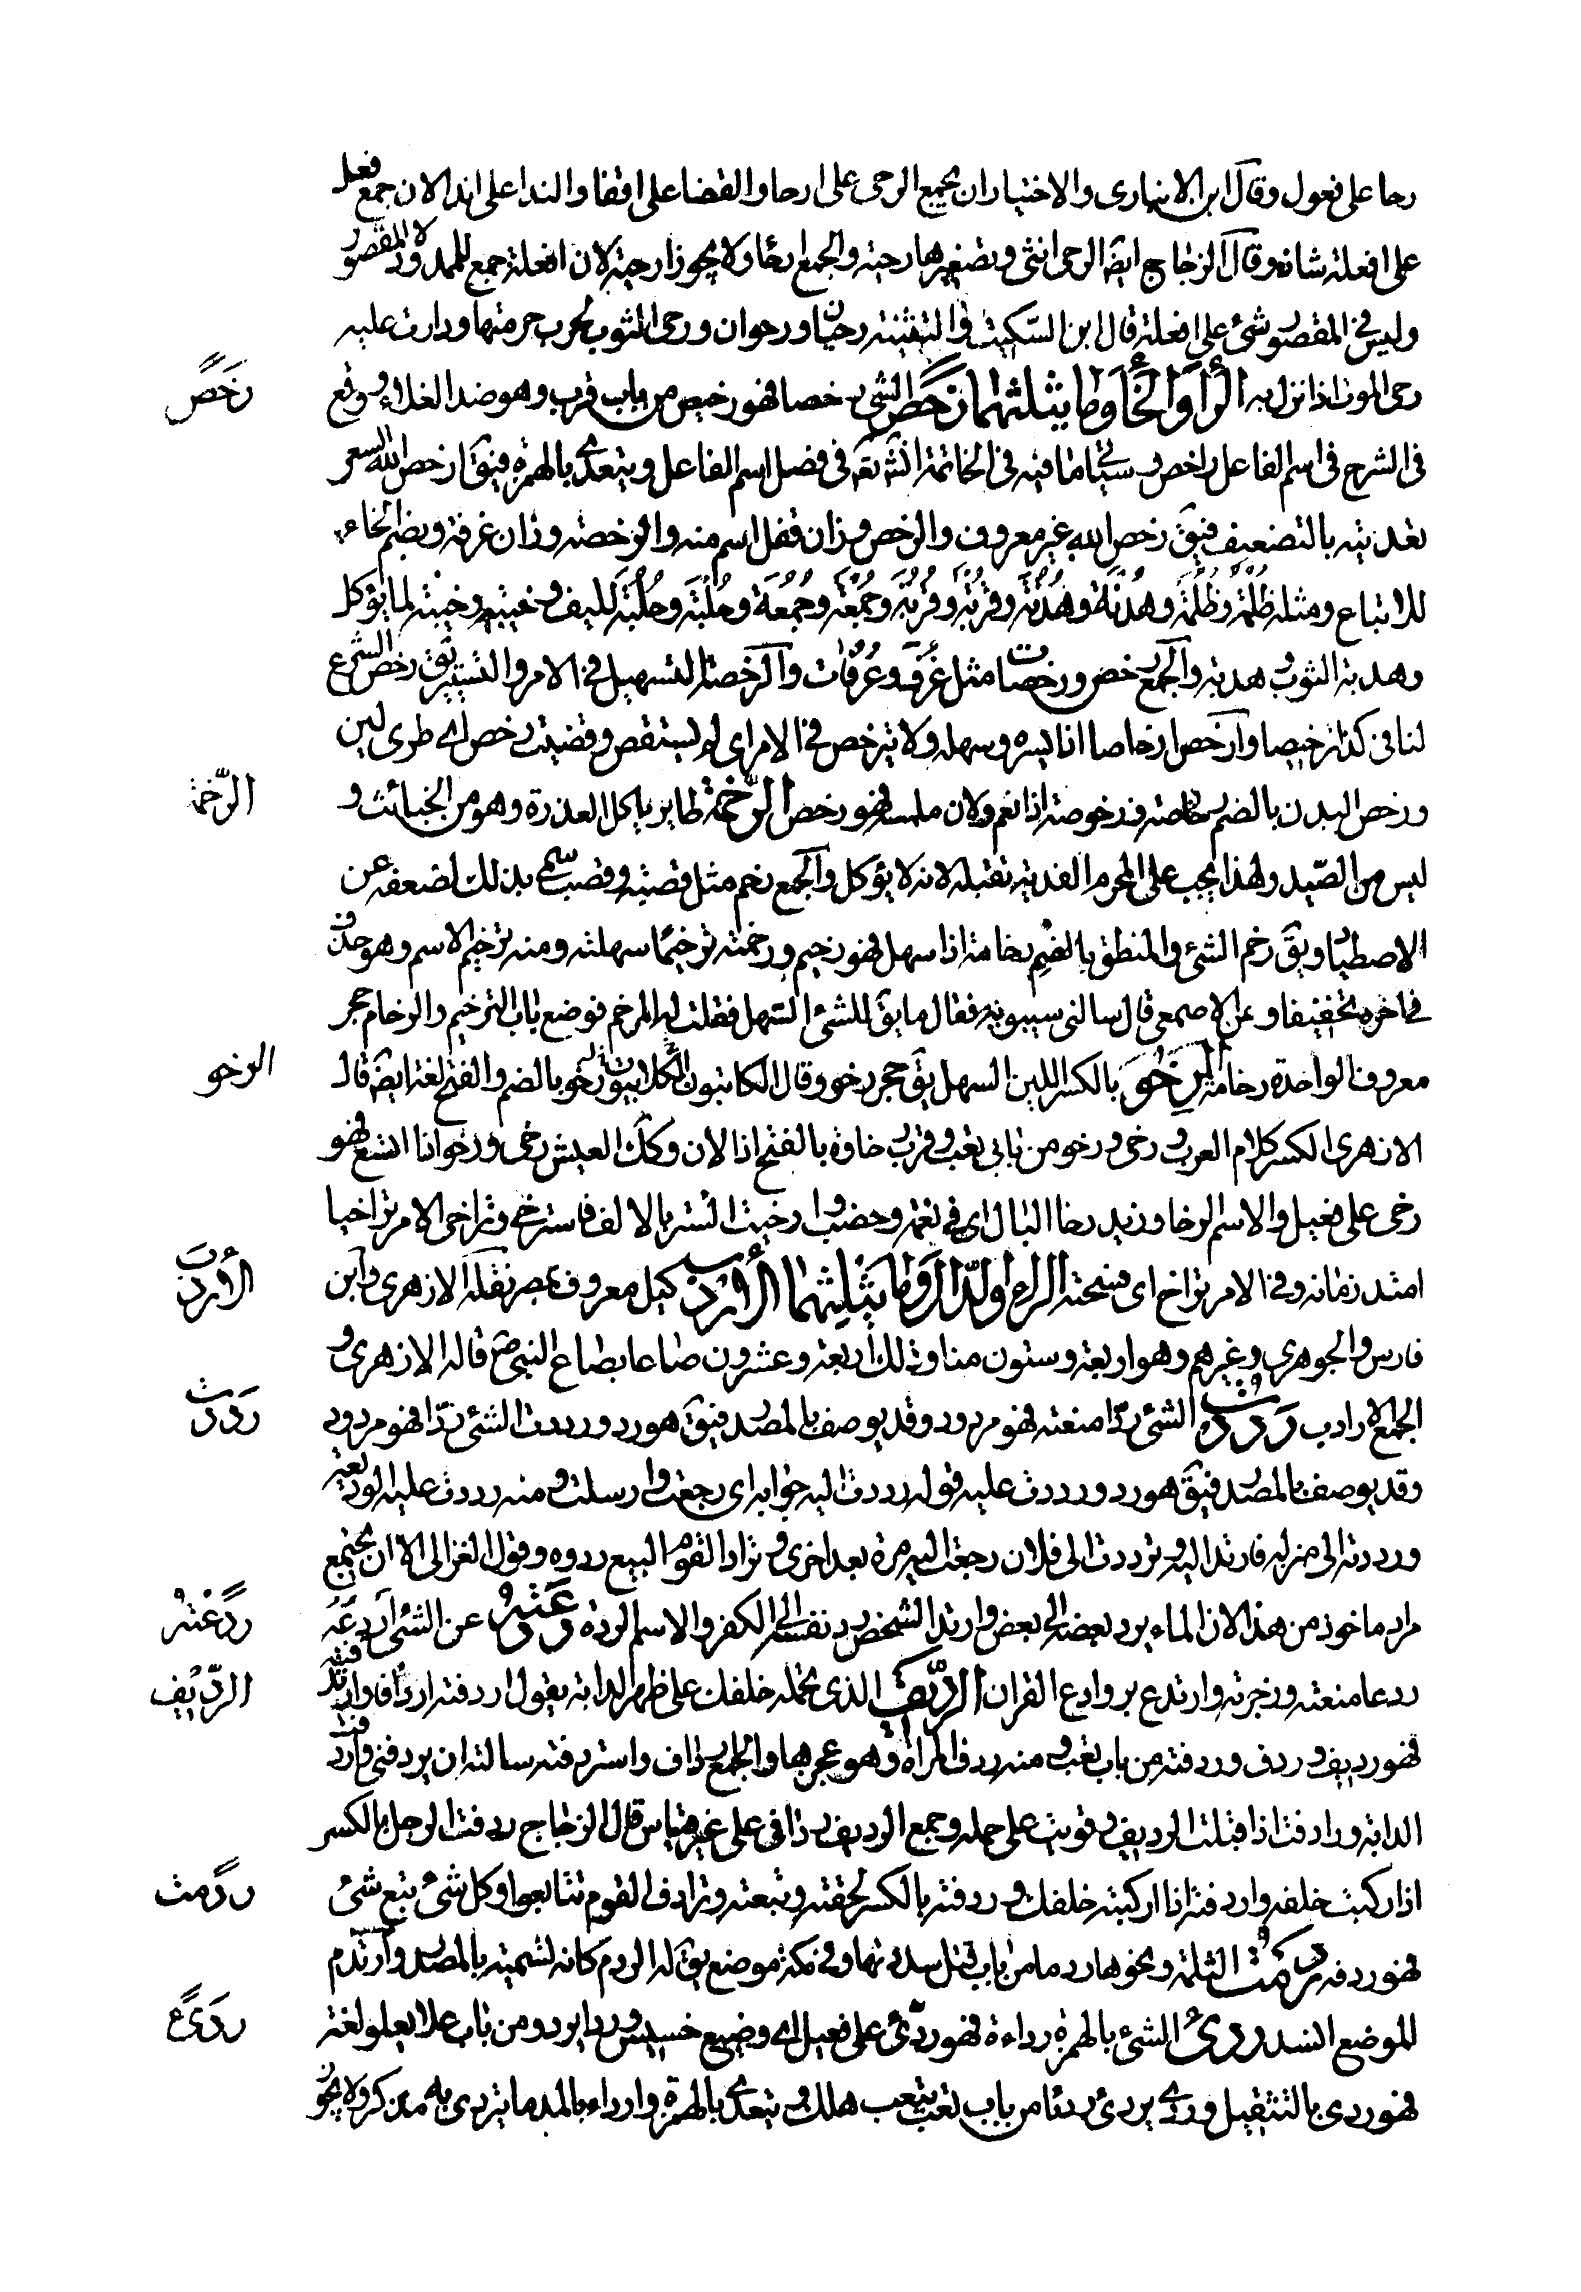 رحا على فعول وقال ابن الانباري والاختيار ان يجمع الرحى على ارحا والقفا على اقفا والندا على اندا لان جمع فعل
على افعلة شاذ وقال الزجاج ايضا الرحى انثى وتصغيرها رحية والجمع ارحا ولا يجوز ارحية لان افعلة جمع للممدود لا المقصور
وليس في المقصور شئ على افعلة قال ابن السكيت والتثنية رحيان ورحوان ورحى الثوب لحرب حرمتها ودارت عليه
رحى الموت اذا نزل به الرا والخا وما يثلثهما رخص الشئ رخصا فهو رخيص من باب قرب وهو ضد الغلاء ووقع
رخص
في الشرح في اسم الفاعل راخص وسياتي ما فيه في الخاتمة انشتعه في فصل اسم الفاعل ويتعدى بالهمزة فيق ارخص الله السعر
تعديته بالتضعيف فيق رخص الله غير معروف والرخص وزان قفل اسم منه والرخصة وزان غرفة وبضم الخاء
للاتباع ومثله ظلمة وظلمة وهدنة وهدنة وقربة وقربة وجمعة وجمعة وحلبة وحلبة لليف وخبنة وخبنة لما يؤكل
وهدبة الثوب وهدبة والجمع رخص ورخصات مثل غرف وغرفات والرخصة التسهيل في الامر والتيسير يق رخص الشرع
لنا في كذا ترخيصا وارخص ارخاصا اذا يسره وسهله ولا يترخص في الامر اي لم يستقص وقضيت رخص اي طرى لين
ورخص البدن بالضم رخاصة ورخوصة اذا نعم ولان ملمسه فهو رخص الرخمة طاير ياكل العذرة وهو من الخبائث و
الرخمة
ليس من الصيد ولهذا لا يجب على المحرم الفدية بقتله لانه لا يؤكل والجمع رخم مثل قصبة وقصب سمي بذلك لضعفه عن
الاصطياد ويق رخم الشئ والمنطق بالضم رخامة اذا سهل فهو رخيم ورخمته ترخيما سهلته ومنه ترخيم الاسم وهو حذف
في اخره تخفيفا وعن الاصمعي قال سالني سيبويه فقال ما يق للشئ السهل فقلت له المرخم فوضع باب الترخيم والرخام حجر
معروف الواحدة رخامة الرخو بالكسر اللين السهل يق حجر رخو وقال الكلابيون رخو بالضم والفتح لغة ايضا قال
الرخو
الازهري الكسر كلام العرب ورخي ورخو من بابي تعب وقرب رخاوة بالفتح اذا لان وكذلك العيش رخي ورخو اذا اتسع فهو
رخي على فعيل والاسم الرخا وزيد رخا البال اي في نعمة وخصب وارخيت الستر بالالف فاسترخى وتراخى الامر تراخيا
امتد زمانه وفي الامر تراخ اي فسحة الرا والدال وما يثلثهما الاردب كيل معروف بمصر نقله الازهري وابن
الاردب
فارس والجوهري وغيرهم وهو اربعة وستون منا وذلك اربعة وعشرون صاعا بصاع النبي ص قاله الازهري و
الجمع الارادب رددت الشئ ردا منعته فهو مردود وقد يوصف بالمصدر فيق هو رد ورددت الشئ ردا فهو مردود
رددت
وقد يوصف بالمصدر فيق هو رد ورددت عليه قوله رددت اليه جوابه اي رجعت وارسلت ومنه رددت عليه الوديعة
ورددته الى منزله فارتد اليه وترددت الى فلان رجعت اليه مرة بعد اخرى وتراد القوم البيع ردوه وقول الغزالي الا ان يجتمع
مراد ماخوذ من هذا لان الماء يرد بعضه الى بعض وارتد الشخص رد نفسه الى الكفر والاسم الردة ردعته عن الشئ اردعه
ردعته
ردعا منعته وزجرته وارتدع بروادع القران الرديف الذي تحمله خلفك على ظهر الدابة يقول اردفته اردافا وارتدفته
الرديف
فهو رديف وردف وردفته من باب تعب ومنه ردف المراة وهو عجزها والجمع ارداف واستردفته سالته ان يردفني واردفت
الدابة ورادفت اذا قبلت الرديف وقويت على حمله وجمع الرديف ردافى على غير قياس قال الزجاج ردفت الرجل بالكسر
اذا ركبت خلفه واردفته اذا اركبته خلفك وردفته بالكسر لحقته وتبعته وترادف القوم تتابعوا وكل شئ تبع شئ
فهو ردفه ردمت الثلمة ونحوها ردما من باب قتل سددتها وفي مكة موضع يق له الردم كانه تسمية بالمصدر وارتدم
ردمت
الموضع انسد ردئ الشئ بالهمزة رداءة فهو ردئ على فعيل اي وضيع خسيس وردا يردو من باب علا يعلو لغة
ردئ
فهو ردي بالتثقيل وردى يردئ ردئا من باب تعب يتعب هلك ويتعدى بالهمزة وارداء بالمد ما يتردى به مذكر ولا يجوز